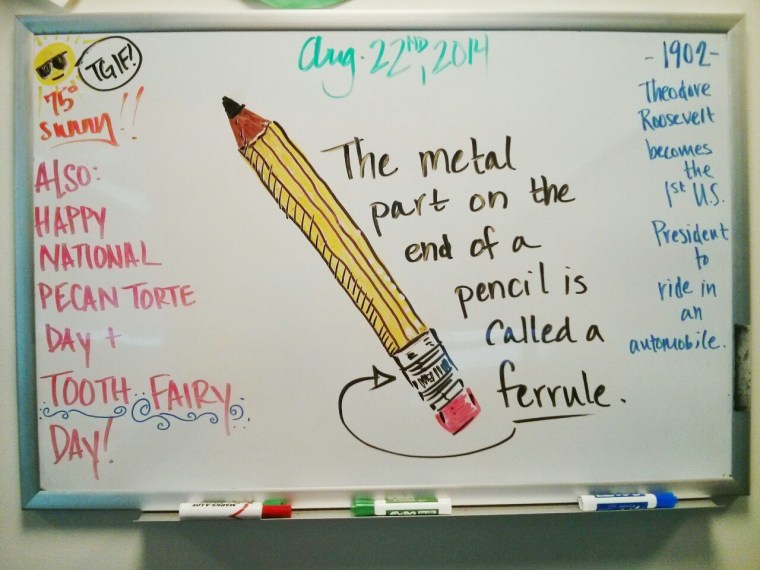 Aug. 22ND, 2014
TGIF!
75°
sunny!!
ALSO:
HAPPY
NATIONAL
PECAN TORTE
DAY +
TOOTH FAIRY
DAY!
The metal
part on the
end of a
pencil is
called a
ferrule.
-1902-
Theodore
Roosevelt
becomes
the
1st U.S.
President
to
ride in
an
automobile.
MARKS-A-LOT